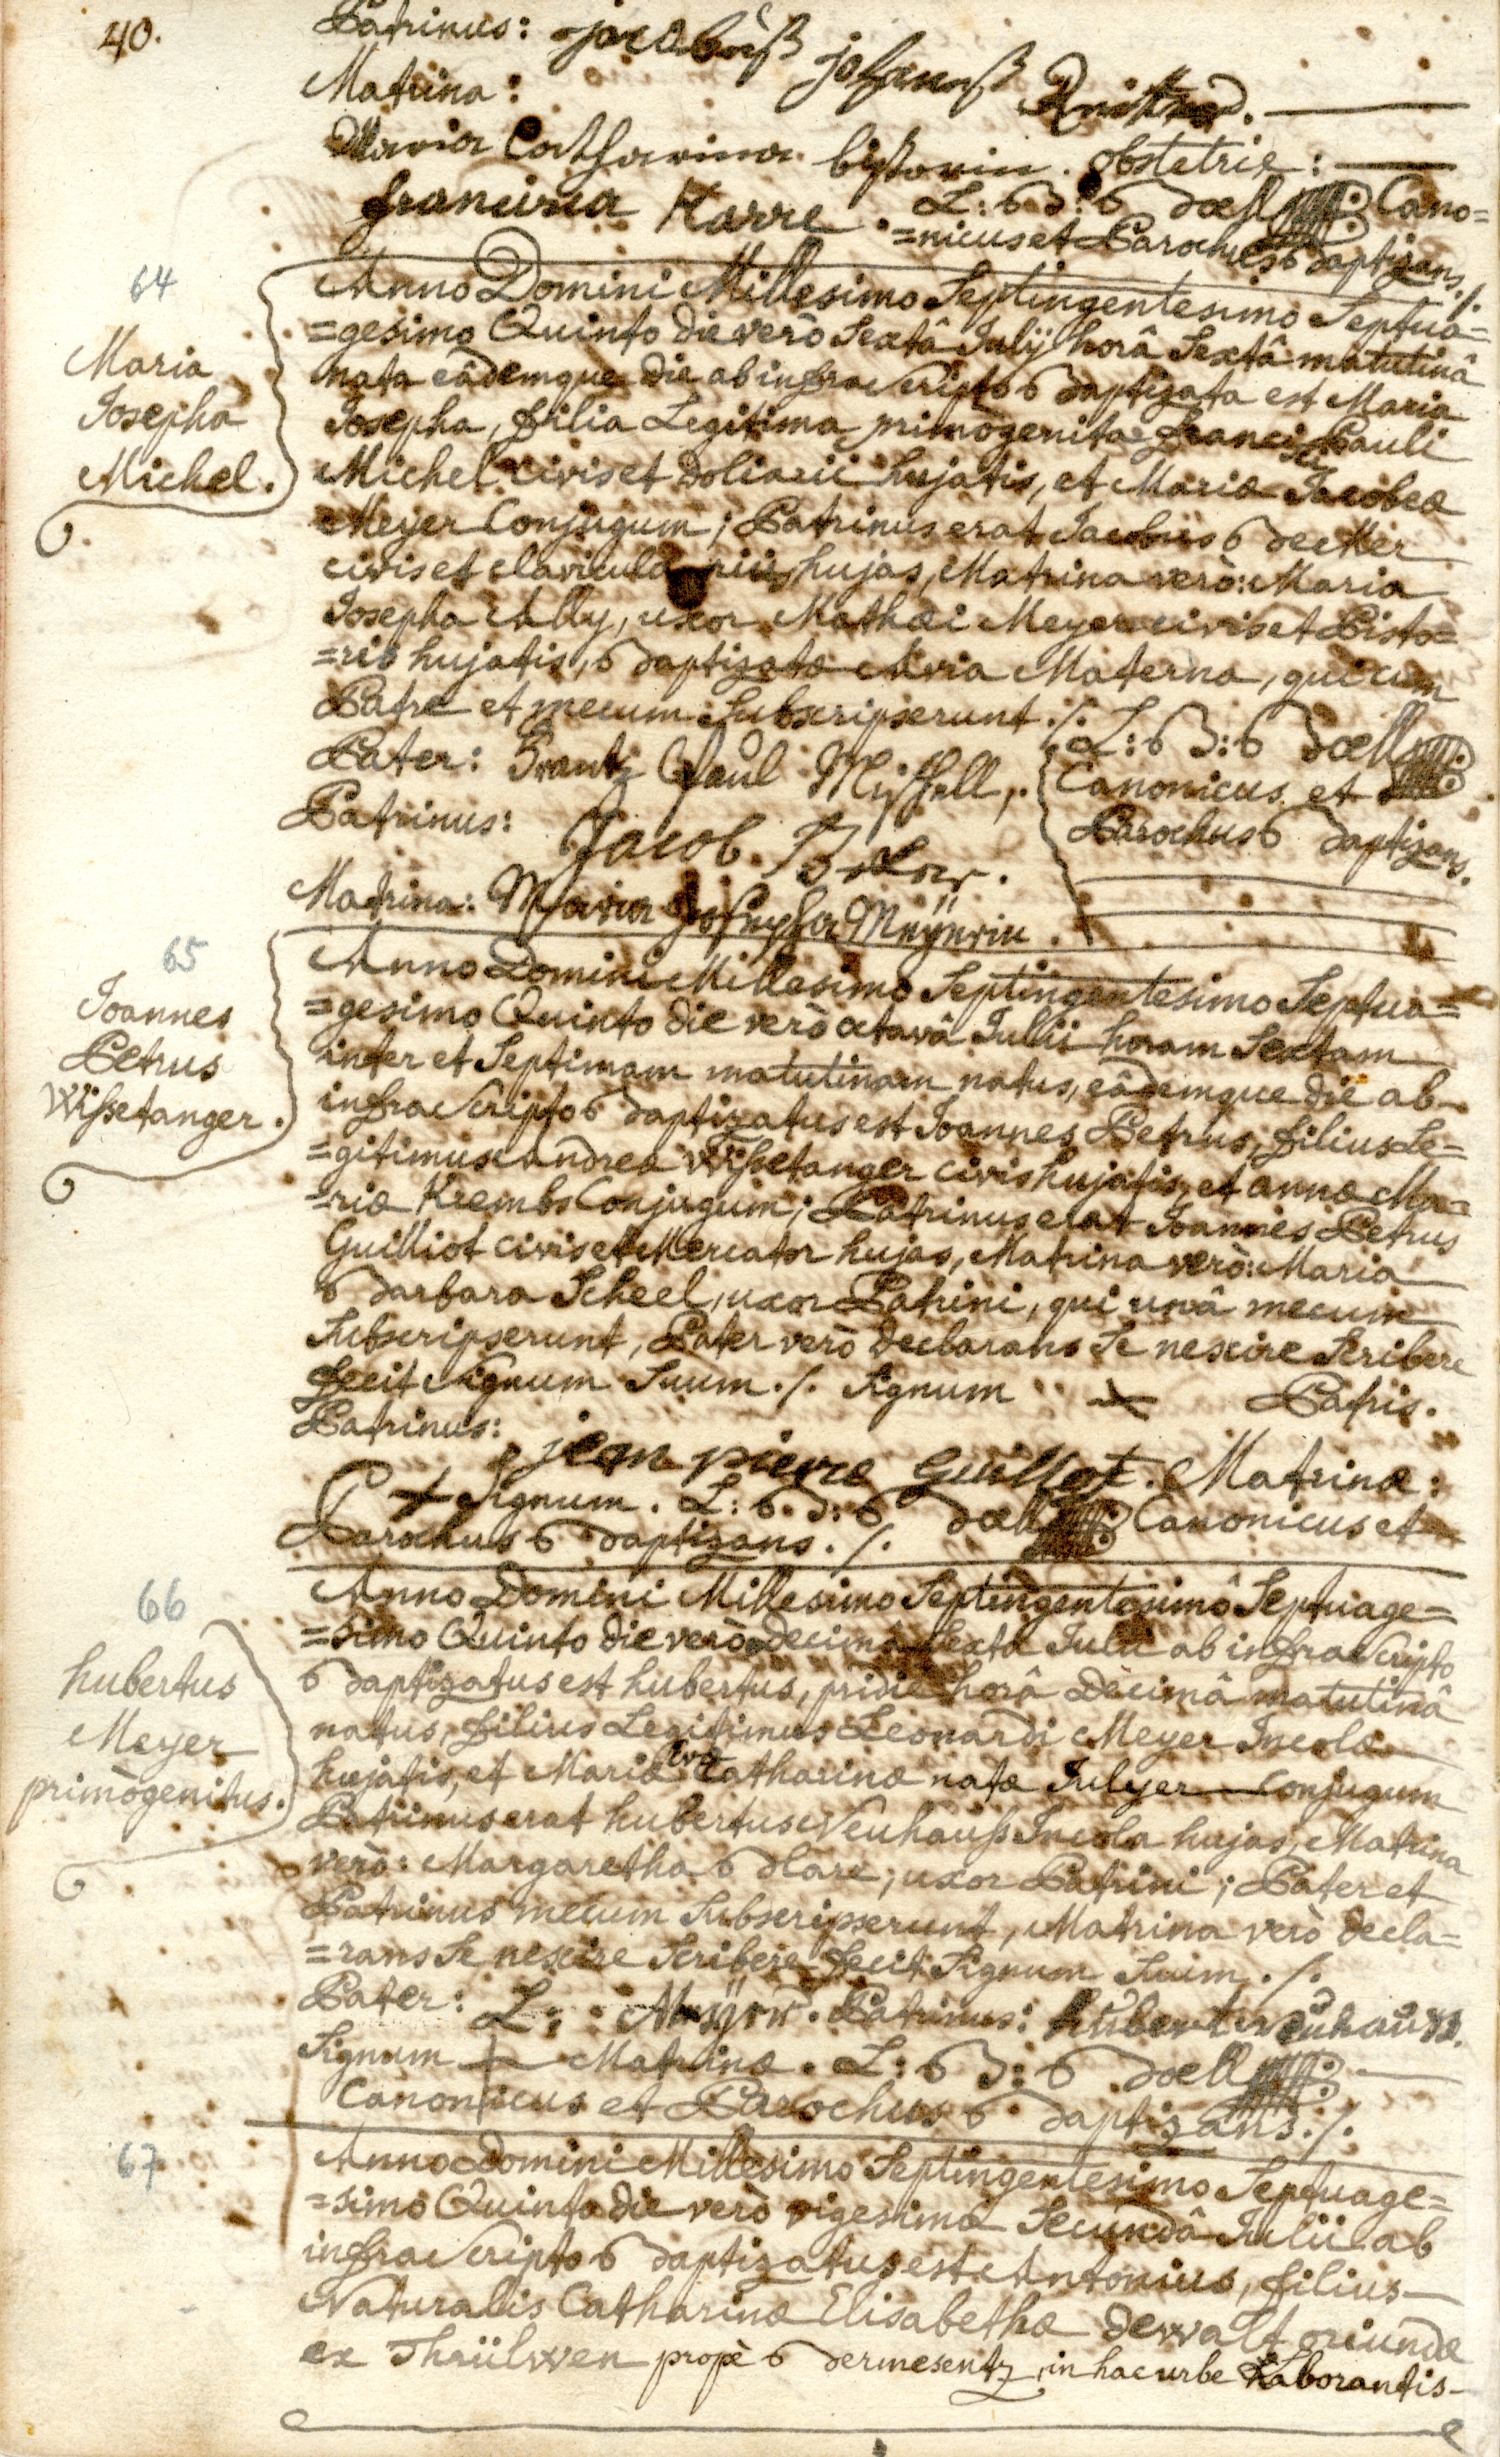 40.
Patrinus: jacobuß johanneß
Matrina:
Maria Catharina bistorin. obstetrix:
francisca Karre. L: B: Boell Cano=
=nicus et Parochus Baptizans ./.
64
Maria
Josepha
Michel.
Anno Domini Millesimo Septingentesimo Septua=
=gesimo Quinto die verò Sextâ Julij horâ Sextâ matutinâ
nata eâdemque die ab infra Scripto Baptizata est Maria
Josepha, filia Legitima primogenita Francisci Pauli
Michel civis et doliarii hujatis, et Mariæ Jacobeæ
Meyer Conjugum; Patrinus erat Jacobus Becker
civis et clavicularius hujas, Matrina verò: Maria
Josepha Ally, uxor Mathæi Meyer civis et Pisto=
=ris hujatis, Baptizatæ Avia Materna, qui cum
Patre et mecum Subscripserunt ./.
L: B: Boell
Pater: Frantz Paul Mischell,
Canonicus et
Patrinus: Jacob Becker.
Parochus Baptizans.
Matrina: Maria Josepha Meÿerin.
65
Joannes
Petrus
Wißetanger.
Anno Domini Millesimo Septingentesimo Septua=
=gesimo Quinto die verò octavâ Julii horam Sextam
inter et Septimam matutinam natus, eâdemque die ab
infra Scripto Baptizatus est Joannes Petrus, filius Le=
=gitimus Andreæ Wißetanger civis hujatis, et annæ Ma=
=riæ Krembs Conjugum; Patrinus erat Joannes Petrus
Guilliot civis et Mercator hujas, Matrina verò: Maria
Barbara Scheel, uxor Patrini, qui unâ mecum
Subscripserunt, Pater verò declarans Se nescire Scribere
fecit Signum Suum ./. Signum + Patris.
Patrinus: jean pierre Guilliot. Matrinæ:
+ Signum. L: B: Boell Canonicus et
Parochus Baptizans ./.
66
hubertus
Meyer
primogenitus.
Anno Domini Millesimo Septingentesimô Septuage=
=simo Quinto die verò Decima Sexta Julii ab infra Scripto
Baptizatus est hubertus, pridie horâ Decimâ matutinâ
natus, filius Legitimus Leonardi Meyer Incolæ
hujatis, et Mariæ Evæ Catharinæ natæ Julyer Conjugum
Patrinus erat hubertus Neuhauß Incola hujas, Matrina
verò: Margaretha Blare, uxor Patrini; Pater et
Patrinus mecum Subscripserunt, Matrina verò decla=
=rans Se nescire Scribere fecit Signum Suum ./.
Pater: L: Meÿer. Patrinus: hubert neuhauß.
Signum + Matrinæ. L: B: Boell
Canonicus et Parochus Baptizans ./.
67
Anno Domini Millesimo Septingentesimo Septuage=
=simo Quinto die verò vigesima Secundâ Julii ab
infra Scripto Baptizatus est Antonius, filius
Naturalis Catharinæ Elisabethæ Dewalt oriundæ
ex Thrülwen propè Bermesentz, in hac urbe Laborantis